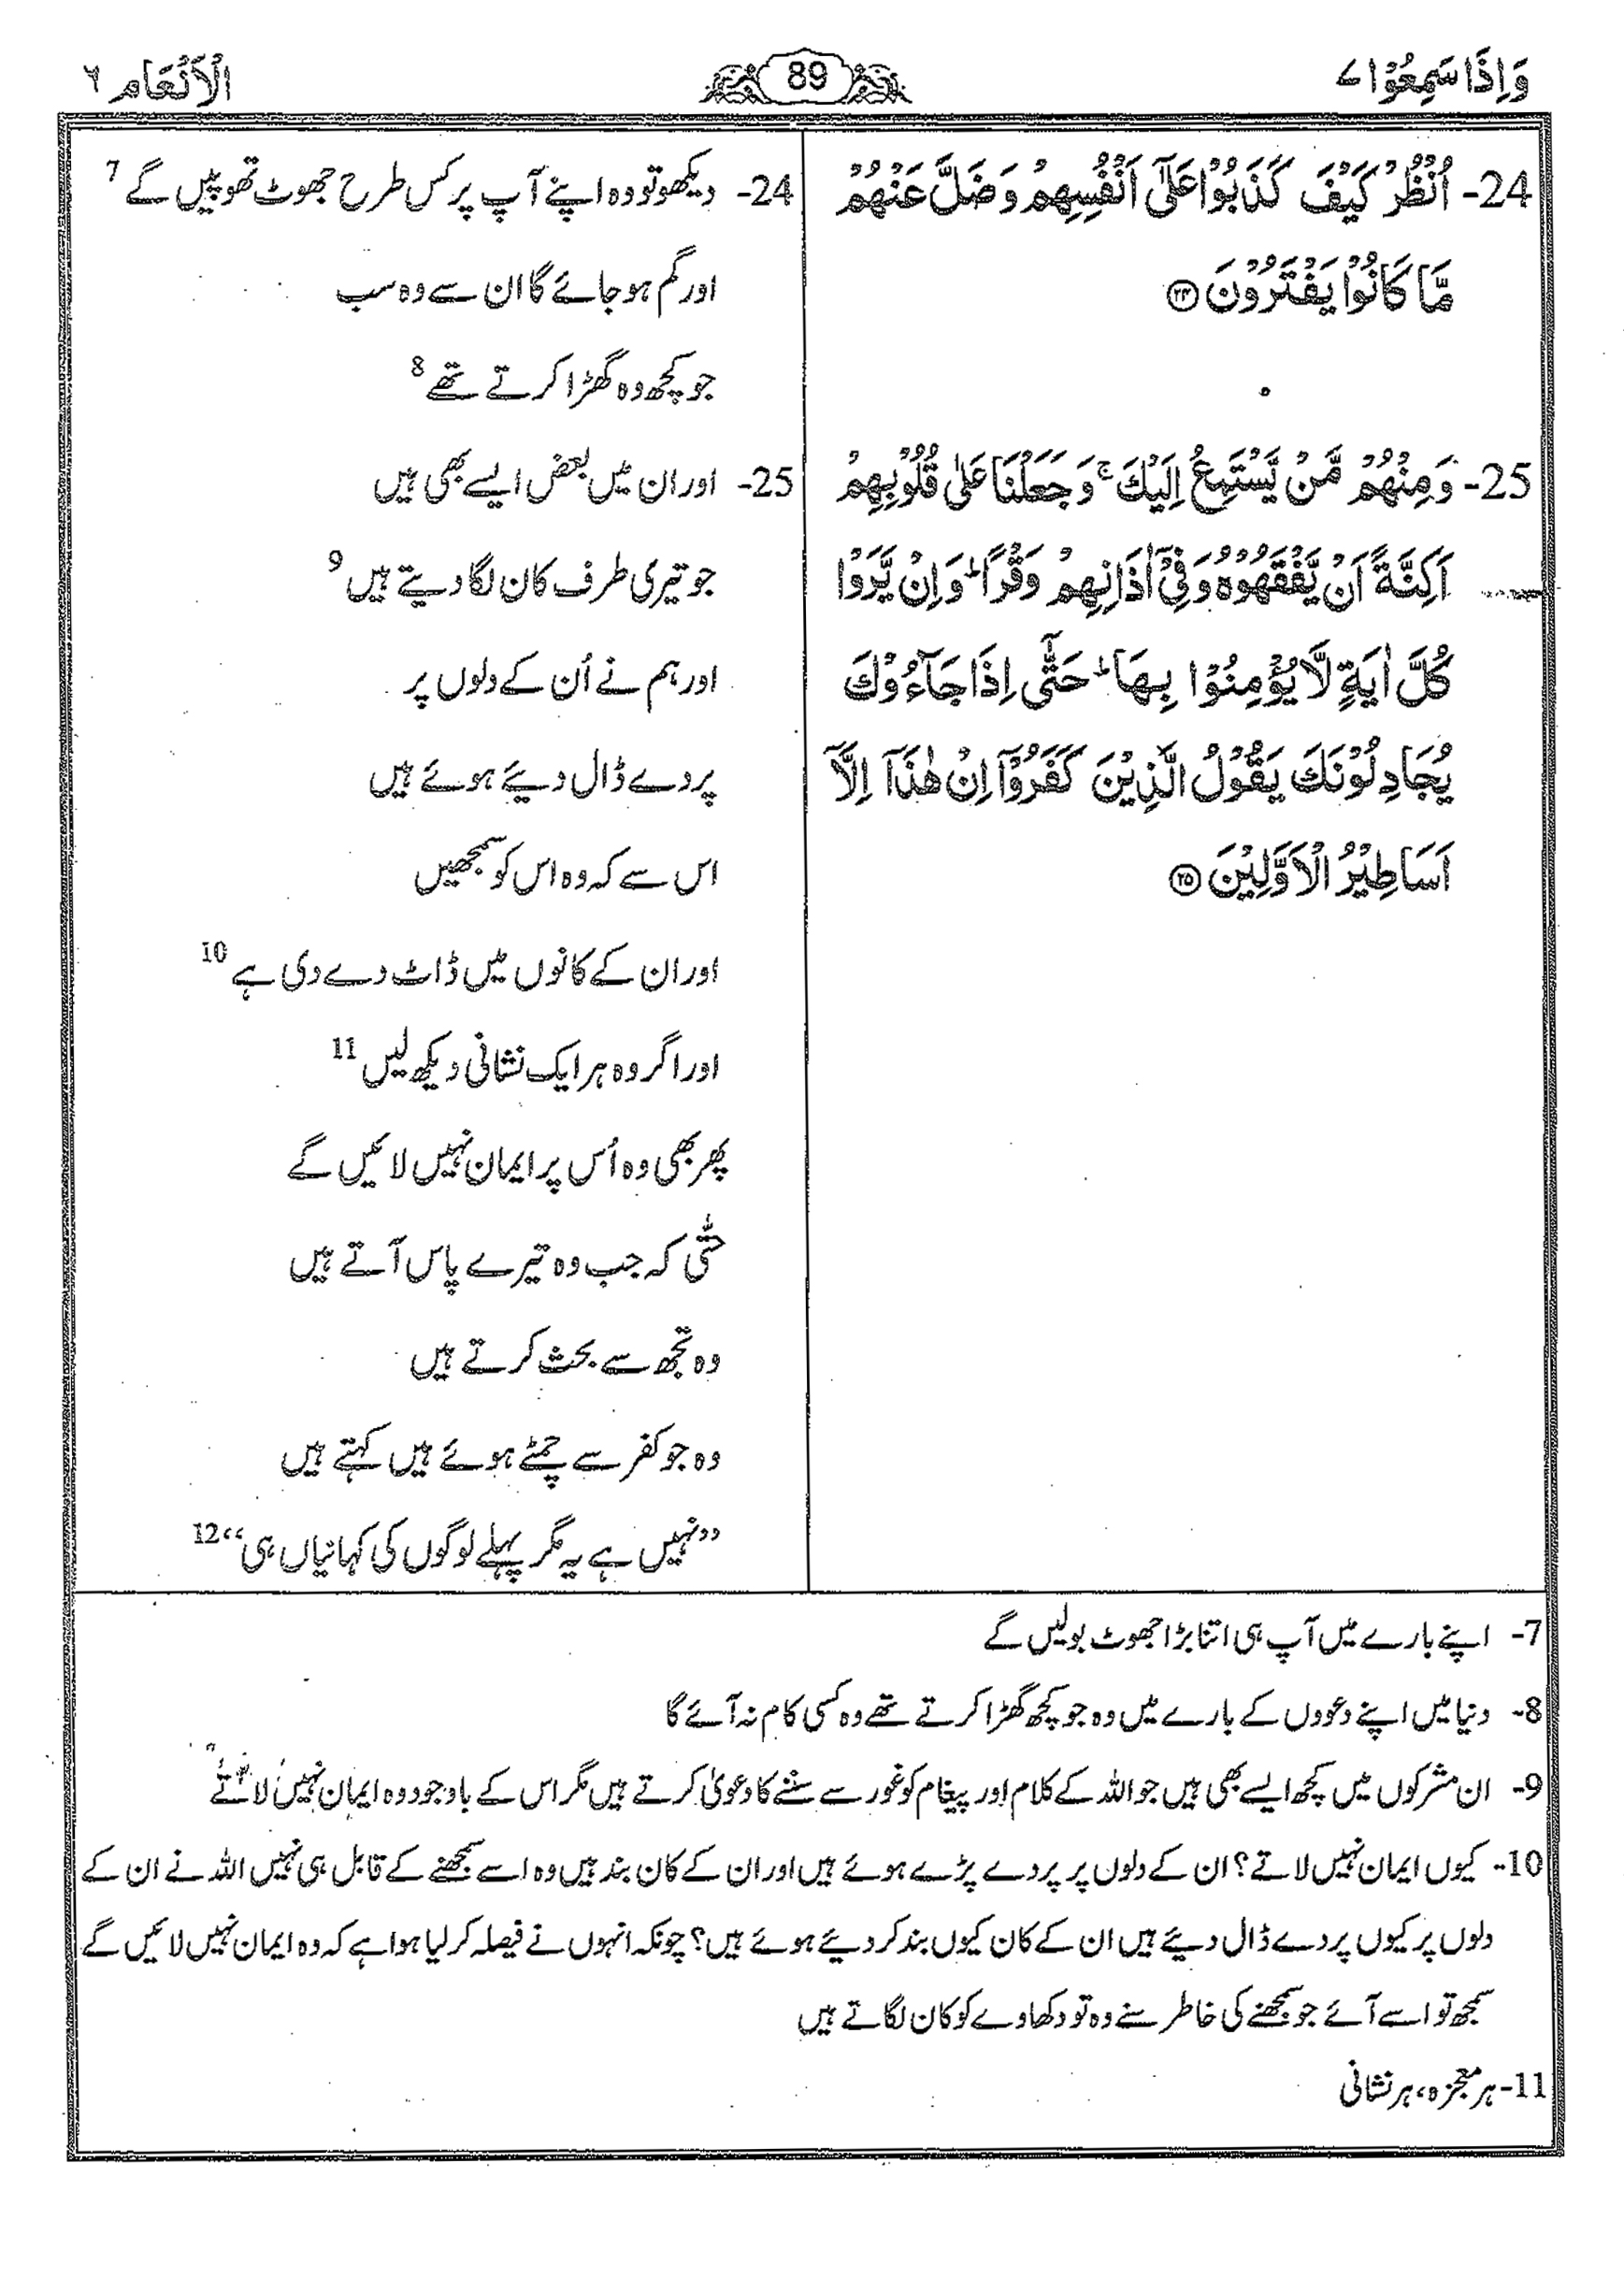 وَاِذَا سَمِعُوۡا ٧
89
الۡاَنۡعَام ٦
24- اُنۡظُرۡ كَيۡفَ كَذَبُوۡا عَلٰٓى اَنۡفُسِهِمۡ وَضَلَّ عَنۡهُمۡ
مَّا كَانُوۡا يَفۡتَرُوۡنَ ۝۲۴
25- وَمِنۡهُمۡ مَّنۡ يَّسۡتَمِعُ اِلَيۡكَ ۚ وَجَعَلۡنَا عَلٰى قُلُوۡبِهِمۡ
اَكِنَّةً اَنۡ يَّفۡقَهُوۡهُ وَفِىۡۤ اٰذَانِهِمۡ وَقۡرًا ؕ وَاِنۡ يَّرَوۡا
كُلَّ اٰيَةٍ لَّا يُؤۡمِنُوۡا بِهَا ؕ حَتّٰٓى اِذَا جَآءُوۡكَ
يُجَادِلُوۡنَكَ يَقُوۡلُ الَّذِيۡنَ كَفَرُوۡۤا اِنۡ هٰذَاۤ اِلَّاۤ
اَسَاطِيۡرُ الۡاَوَّلِيۡنَ ۝۲۵
24- دیکھو تو وہ اپنے آپ پر کس طرح جھوٹ تھوپیں گے 7
اور گم ہو جائے گا ان سے وہ سب
جو کچھ وہ گھڑا کرتے تھے 8
25- اور ان میں بعض ایسے بھی ہیں
جو تیری طرف کان لگا دیتے ہیں 9
اور ہم نے اُن کے دلوں پر
پردے ڈال دیئے ہوئے ہیں
اس سے کہ وہ اس کو سمجھیں
اور ان کے کانوں میں ڈاٹ دے دی ہے 10
اور اگر وہ ہر ایک نشانی دیکھ لیں 11
پھر بھی وہ اُس پر ایمان نہیں لائیں گے
حتّٰی کہ جب وہ تیرے پاس آتے ہیں
وہ تجھ سے بحث کرتے ہیں
وہ جو کفر سے چمٹے ہوئے ہیں کہتے ہیں
”نہیں ہے یہ مگر پہلے لوگوں کی کہانیاں ہی“ 12
7- اپنے بارے میں آپ ہی اتنا بڑا جھوٹ بولیں گے
8- دنیا میں اپنے دعووں کے بارے میں وہ جو کچھ گھڑا کرتے تھے وہ کسی کام نہ آئے گا
9- ان مشرکوں میں کچھ ایسے بھی ہیں جو اللہ کے کلام اور پیغام کو غور سے سننے کا دعویٰ کرتے ہیں مگر اس کے باوجود وہ ایمان نہیں لاتے
10- کیوں ایمان نہیں لاتے؟ ان کے دلوں پر پردے پڑے ہوئے ہیں اور ان کے کان بند ہیں وہ اسے سمجھنے کے قابل ہی نہیں اللہ نے ان کے
دلوں پر کیوں پردے ڈال دیئے ہیں ان کے کان کیوں بند کر دیئے ہوئے ہیں؟ چونکہ انہوں نے فیصلہ کر لیا ہوا ہے کہ وہ ایمان نہیں لائیں گے
سمجھ تو اسے آئے جو سمجھنے کی خاطر سنے وہ تو دکھاوے کو کان لگاتے ہیں
11- ہر معجزہ، ہر نشانی